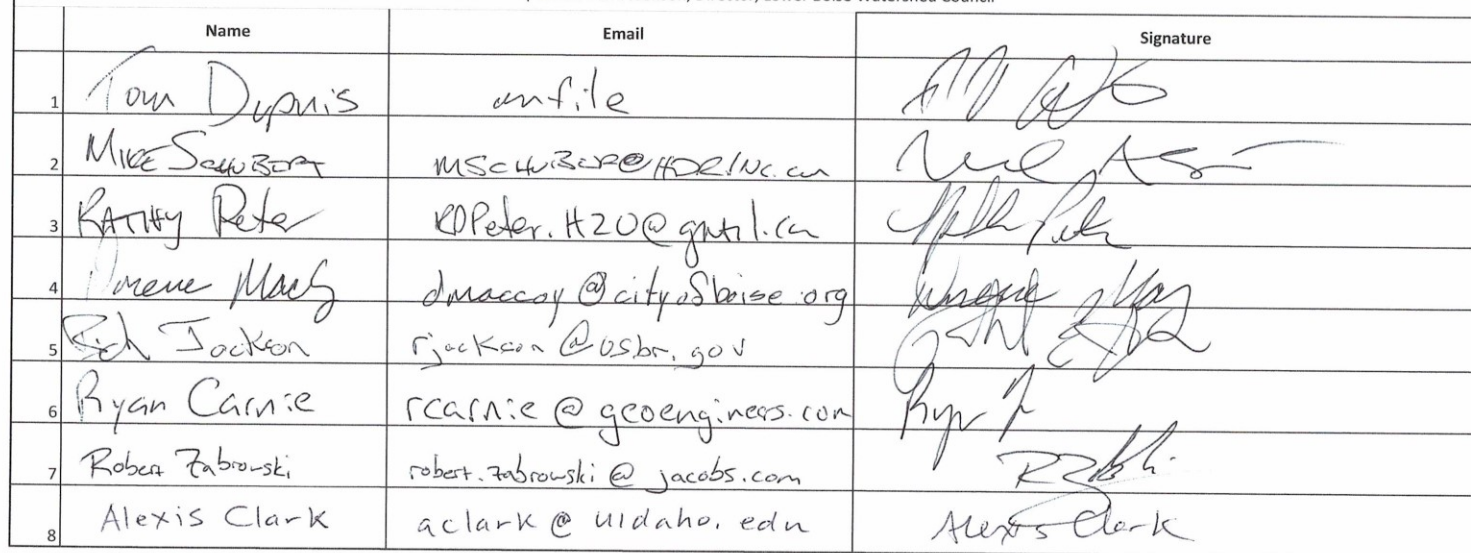 Lower Boise Watershed Council
Name Email Signature
1 Tom Dupuis on file
2 MIKE SCHUBERT MSCHUBER@HDRINC.com
3 KATHY Peter KDPeter.H2O@gmail.com
4 Dorene MacCoy dmaccoy@cityofboise.org
5 Rich Jackson rjackson@usbr.gov
6 Ryan Carnie rcarnie@geoengineers.com
7 Robert Zabrowski robert.zabrowski@jacobs.com
8 Alexis Clark aclark@uidaho.edu Alexis Clark